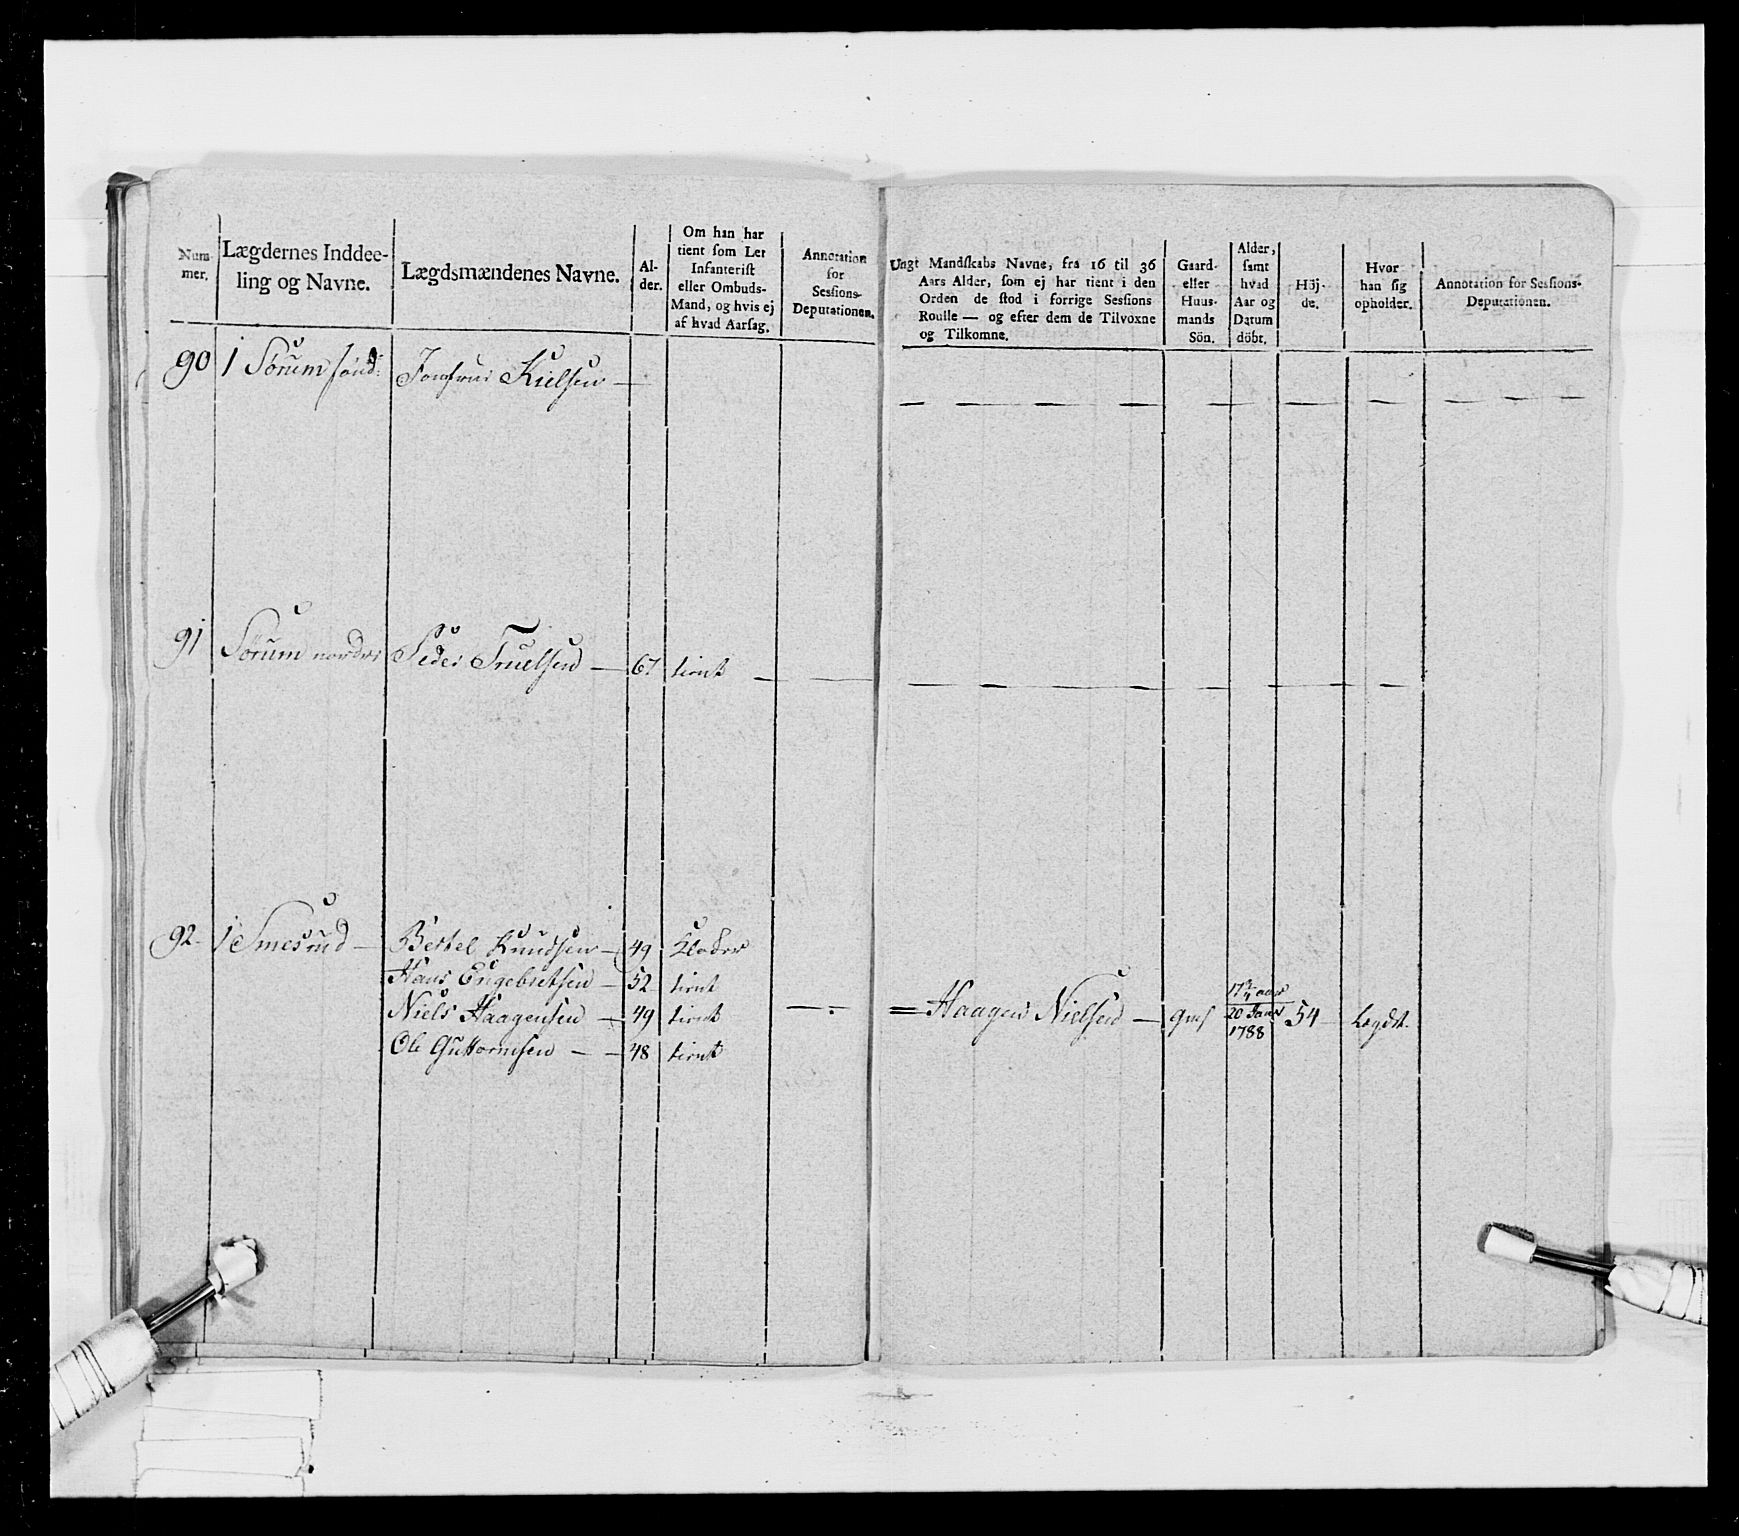 Num-
mer.
Lægdernes Inddee-
ling og Navne.
Lægdsmændenes Navne.
Al-
der.
Om han har
tient som Let
Infanterist
eller Ombuds-
Mand, og hvis ej
af hvad Aarsag.
Annotation
for
Sessions-
Deputationen.
Ungt Mandskabs Navne, fra 16 til 36
Aars Alder, som ej har tient i den
Orden de stod i forrige Sessions
Roulle — og efter dem de Tilvoxne
og Tilkomne.
Gaard-
eller
Huus-
mands
Sön.
Alder,
samt
hvad
Aar og
Datum
döbt.
Höj-
de.
Hvor
han sig
opholder.
Annotation for Sessions-
Deputationen.
90 1 Sørum sønd: Jomfrue Kielsen —
91 Sørum nordre Peder Truelsen — 67 tient —
92. 1 Smesrud — Bertel Knudsen — 49
Hans Engebretsen — 52 tient
Niels Haagensen — 49 tient — = Haagen Nielsen — gms 17 3/4 aar 20 Janr 1788 54 Lægdet.
Ole Guttormsen — — 48 tient